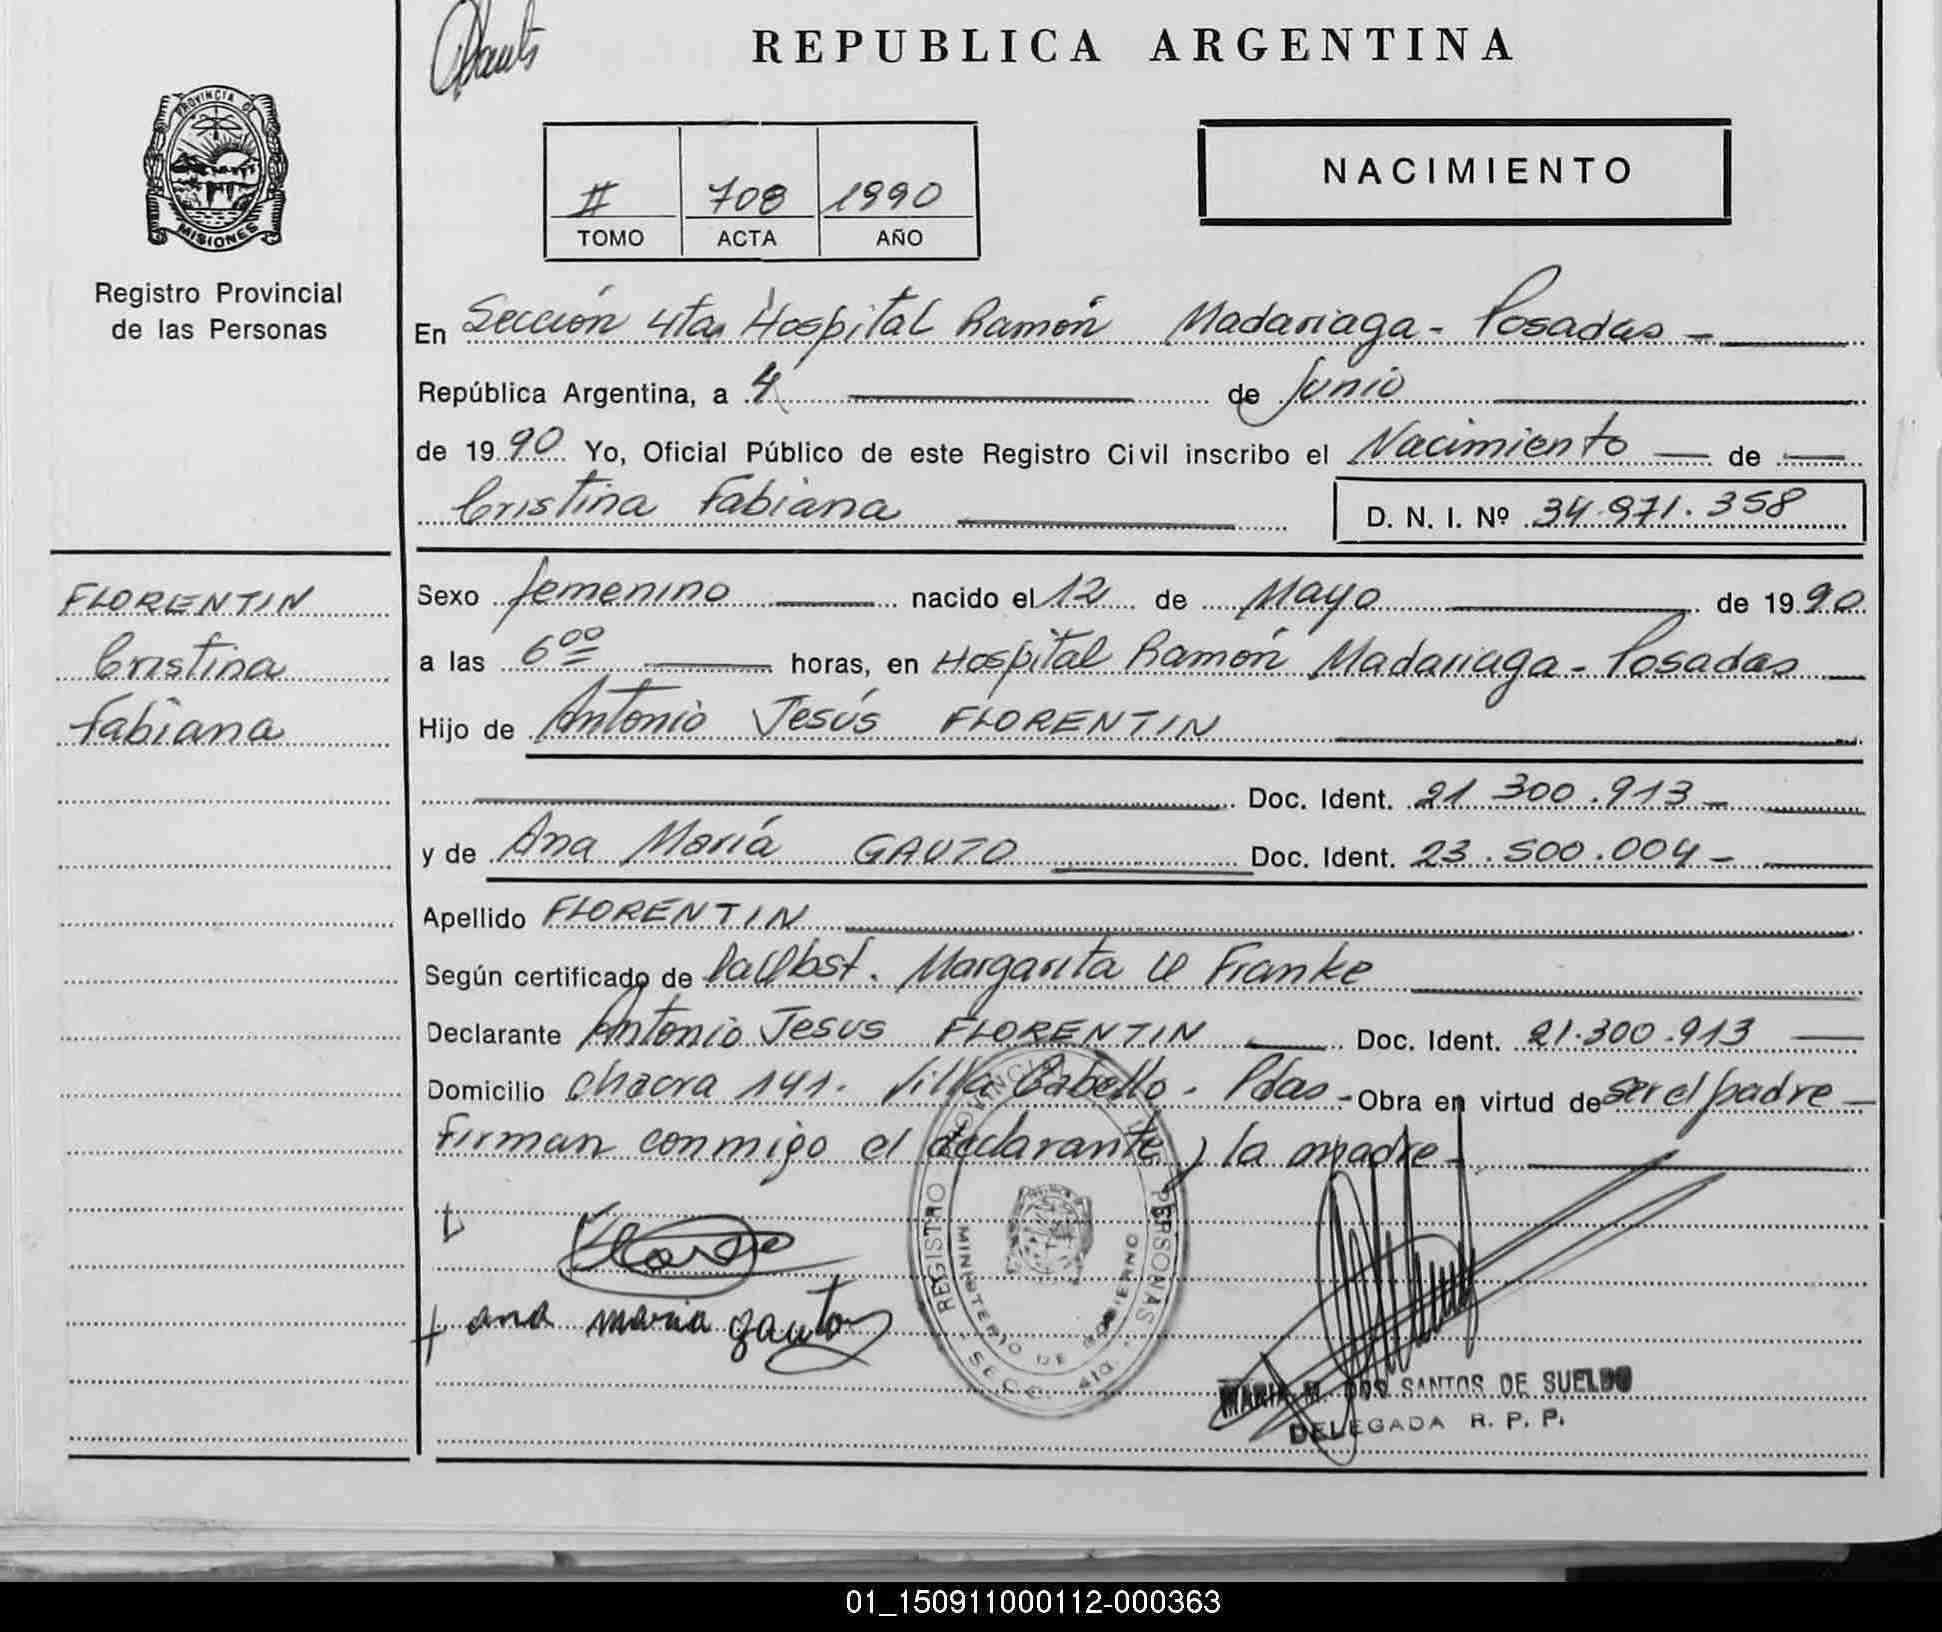 REPUBLICA ARGENTINA
PROVINCIA DE
MISIONES
Registro Provincial
de las Personas
II 708 1990
TOMO ACTA AÑO
NACIMIENTO
En Sección 4ta Hospital Ramón Madariaga - Posadas -
República Argentina, a 4 de Junio
de 1990 Yo, Oficial Público de este Registro Civil inscribo el Nacimiento de
Cristina Fabiana D. N. I. Nº 34.971.358
FLORENTIN
Cristina
Fabiana
Sexo femenino nacido el 12 de Mayo de 1990
a las 6 00 horas, en Hospital Ramón Madariaga - Posadas
Hijo de Antonio Jesús FLORENTIN
Doc. Ident. 21.300.913 -
y de Ana María GAUTO Doc. Ident. 23.500.004 -
Apellido FLORENTIN
Según certificado de Obst. Margarita Franke
Declarante Antonio Jesus FLORENTIN Doc. Ident. 21.300.913
Domicilio chacra 141. Villa Cabello - Pdas - Obra en virtud de ser el padre
Firman conmigo el declarante y la madre -
ana maria gauto
REGISTRO PROVINCIAL PERSONAS
MINISTERIO DE GOBIERNO
SECC. 4ta.
MARIA M. DOS SANTOS DE SUELDO
DELEGADA R. P. P.
01_150911000112-000363